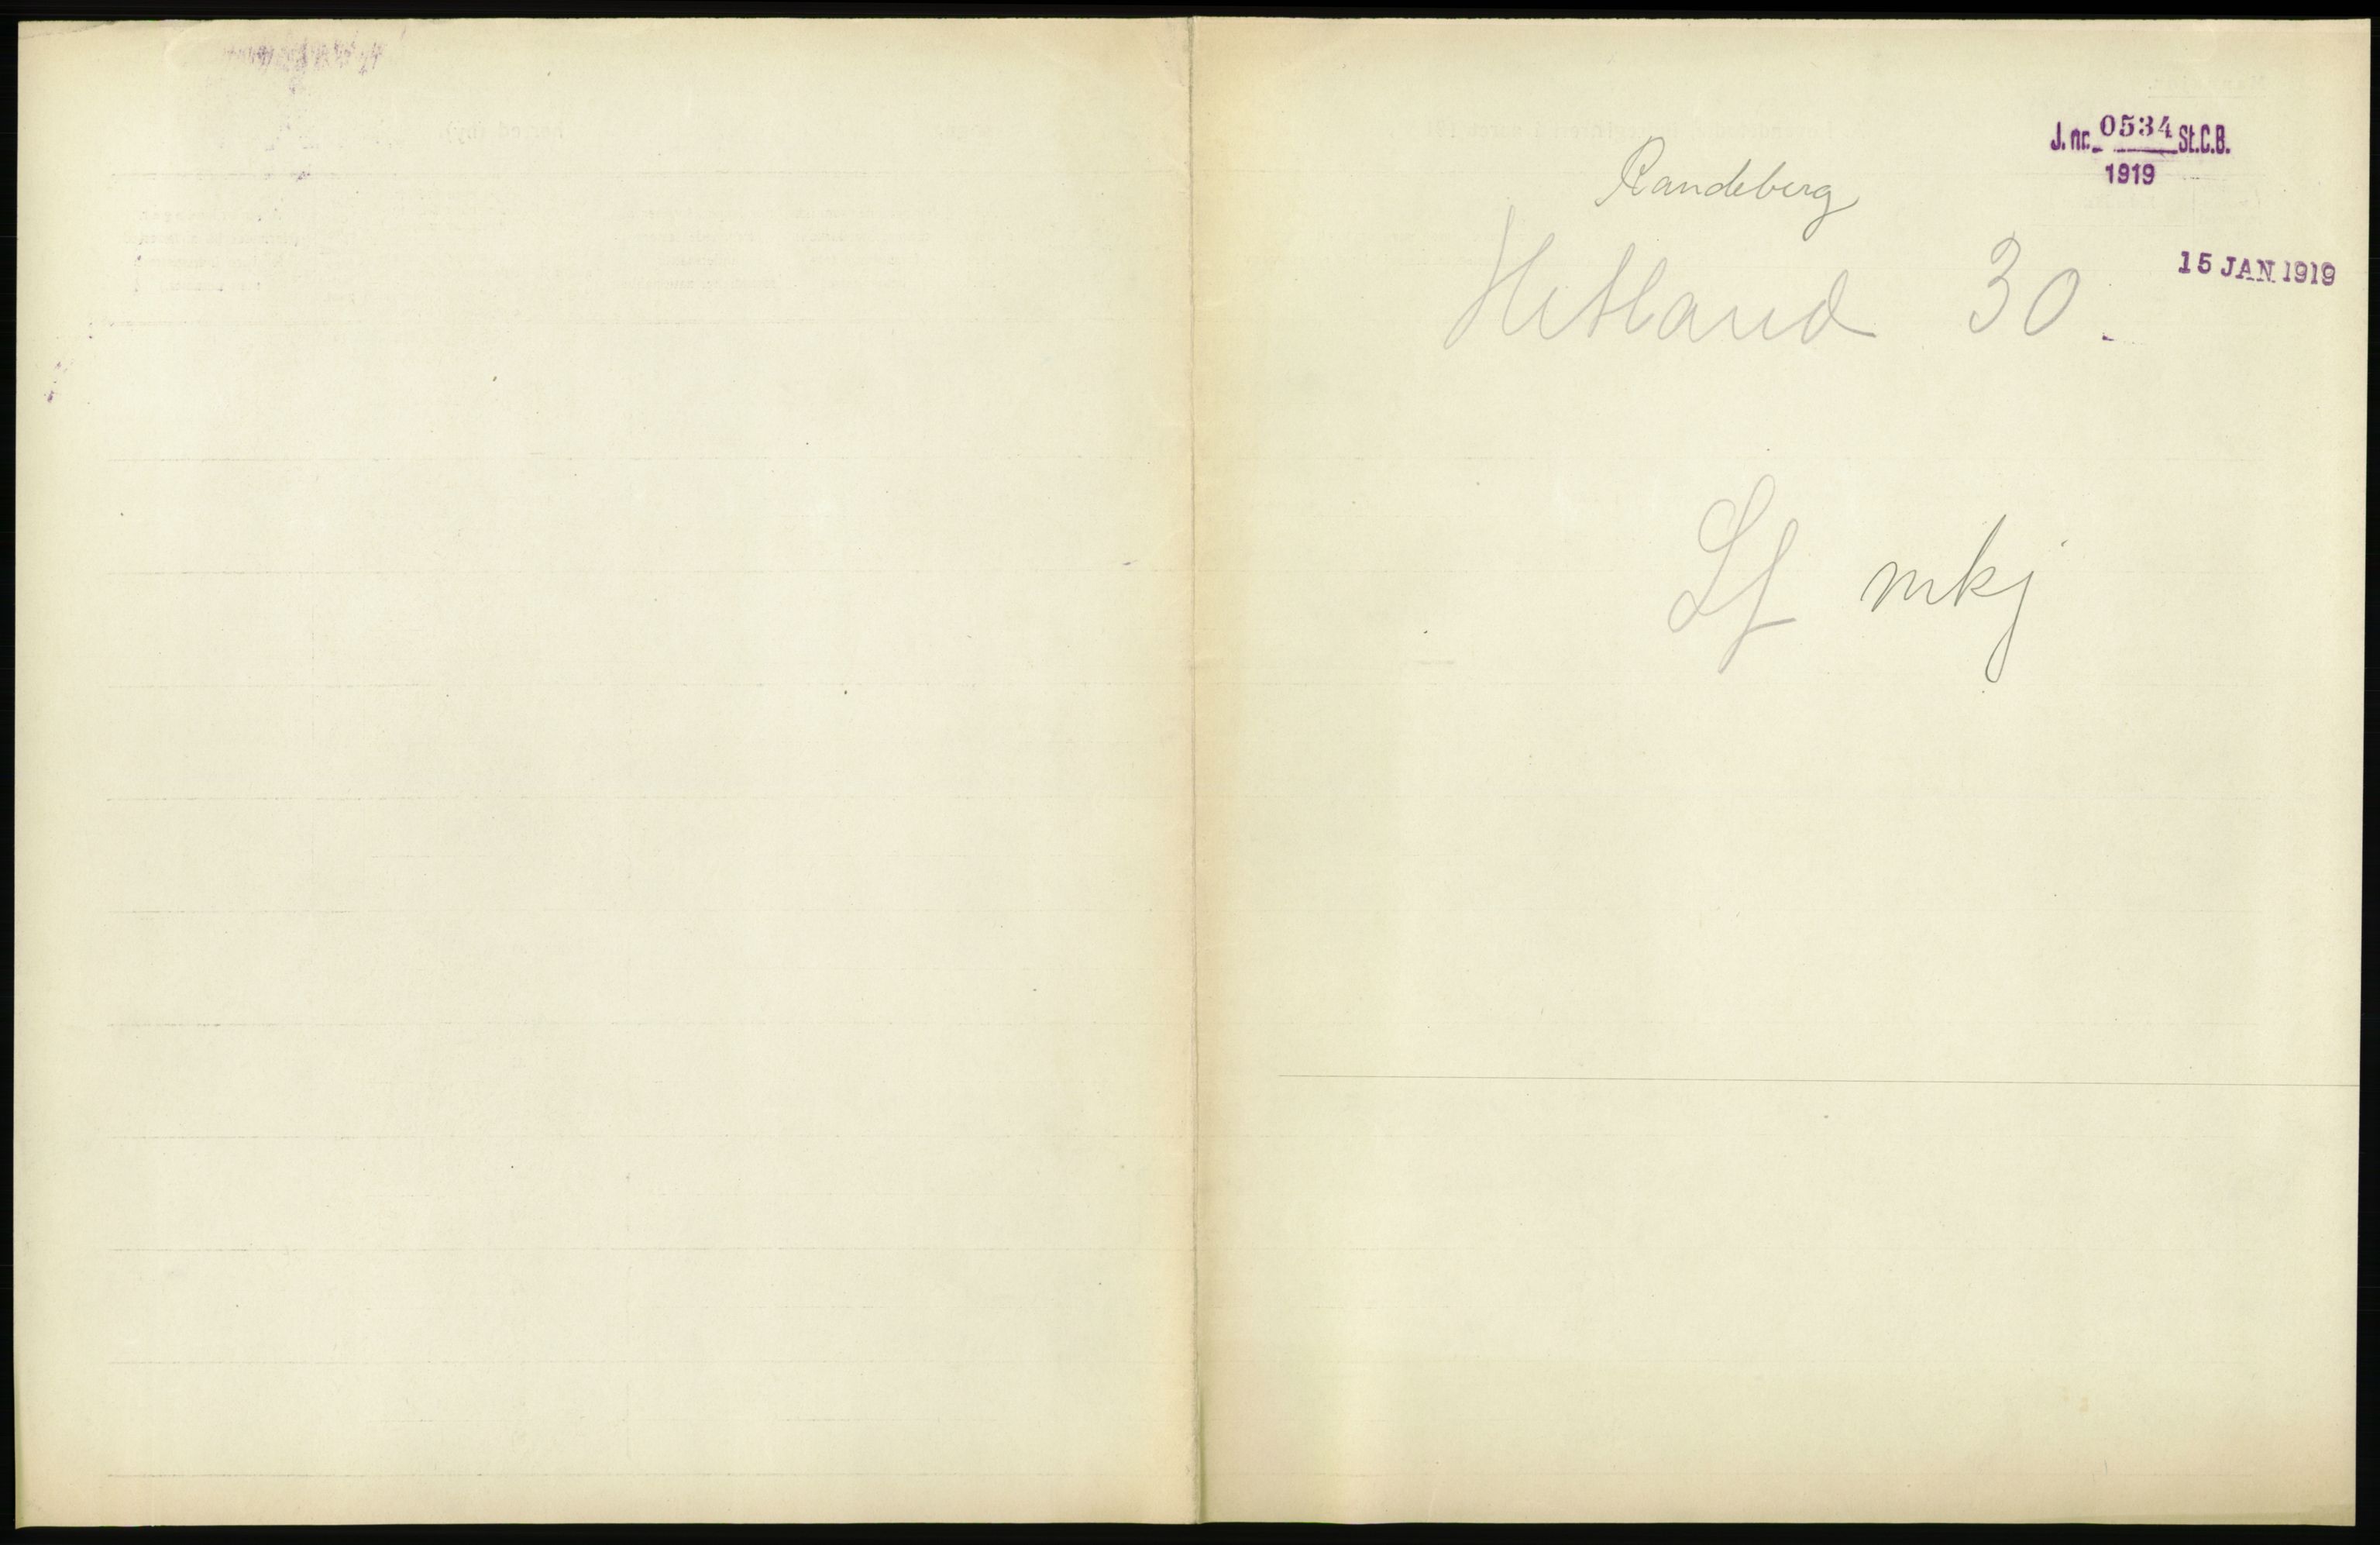 J. nr. 0534 St.C.B.
1919
Randeberg
Hetland 30.
15 JAN 1919
Lf mkj